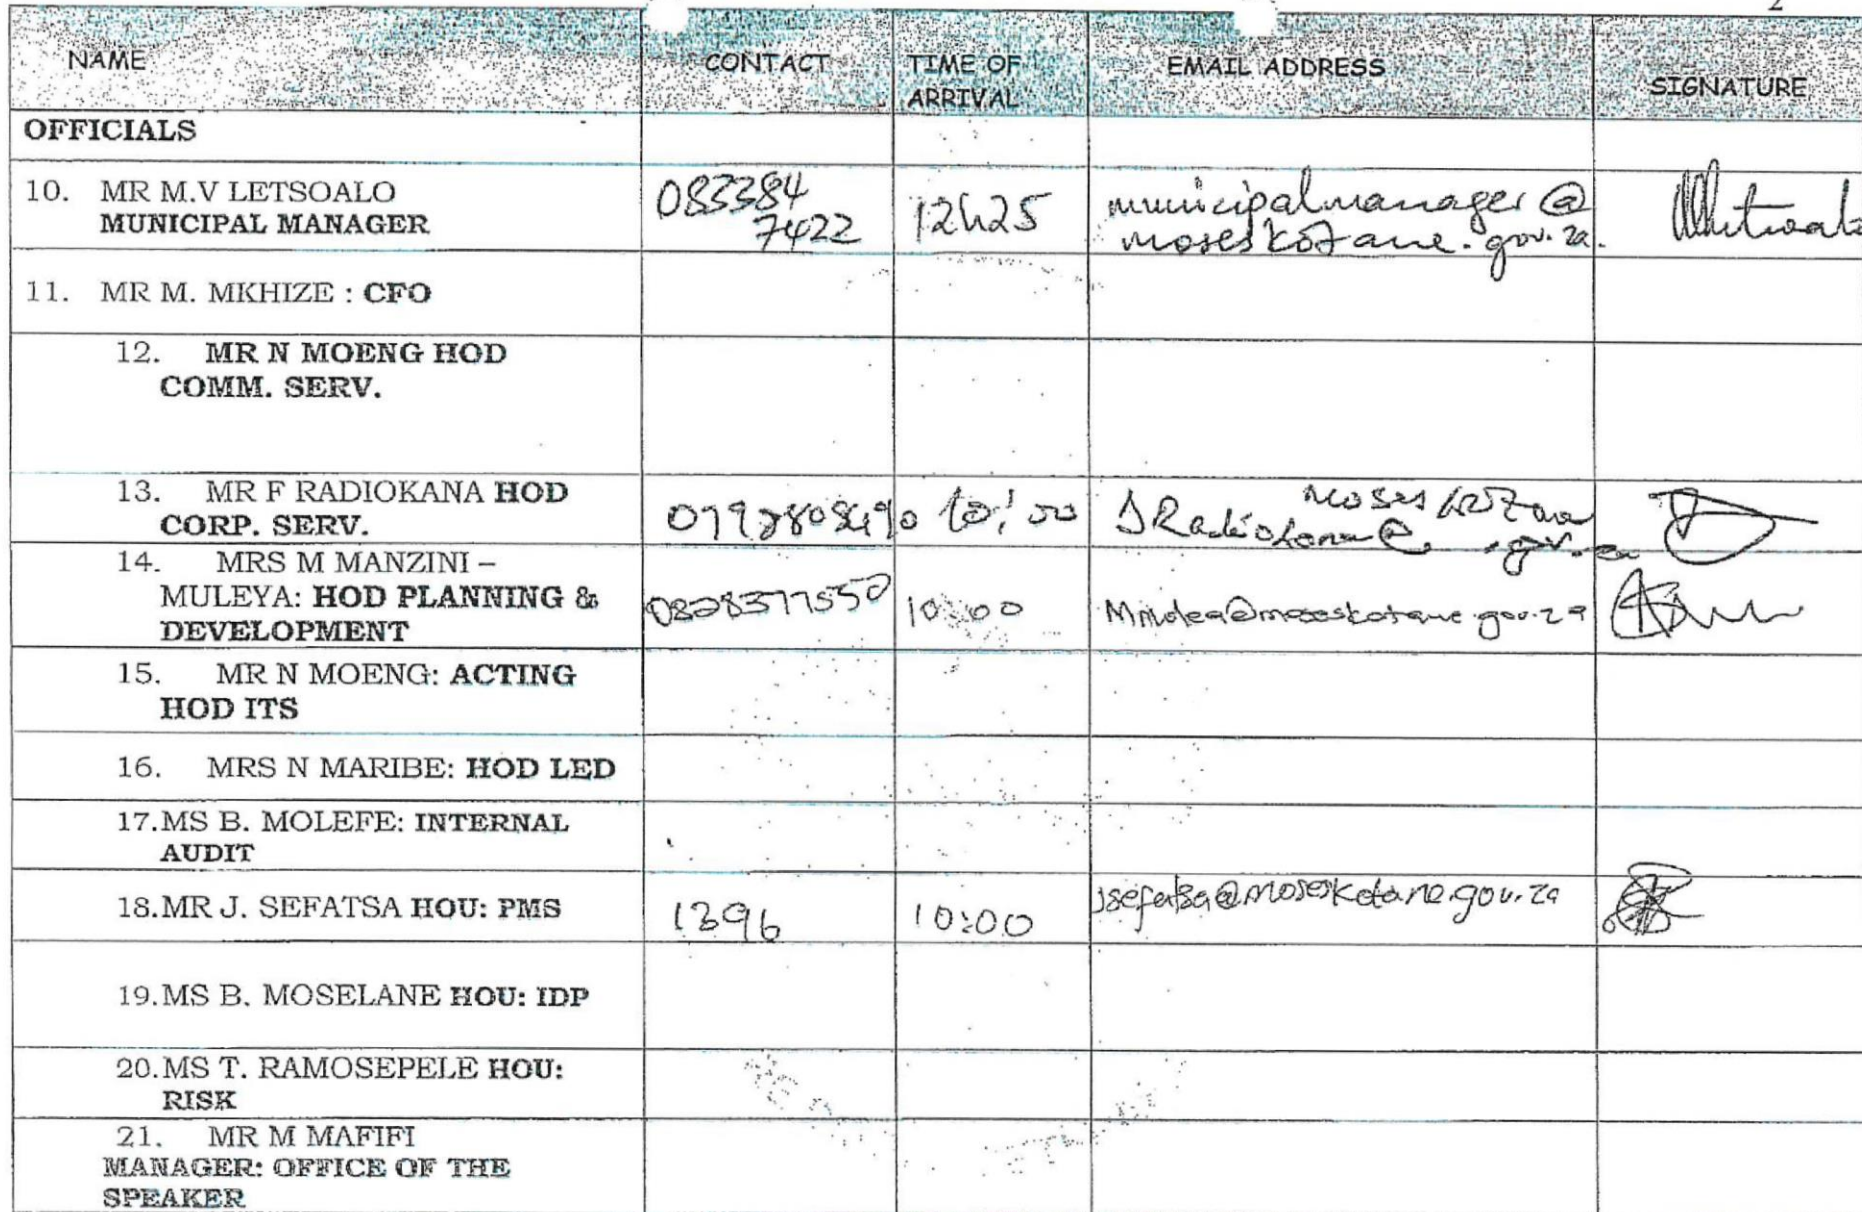 2
NAME CONTACT TIME OF ARRIVAL EMAIL ADDRESS SIGNATURE
OFFICIALS
10. MR M.V LETSOALO
MUNICIPAL MANAGER
083384
7422
12h25
municipalmanager@
moseskotane.gov.za.
11. MR M. MKHIZE : CFO
12. MR N MOENG HOD
COMM. SERV.
13. MR F RADIOKANA HOD
CORP. SERV.
10:00
14. MRS M MANZINI –
MULEYA: HOD PLANNING &
DEVELOPMENT
0828377550
10:00
15. MR N MOENG: ACTING
HOD ITS
16. MRS N MARIBE: HOD LED
17.MS B. MOLEFE: INTERNAL
AUDIT
18.MR J. SEFATSA HOU: PMS
1396
10:00
jsefatsa@moseskotane.gov.za
19.MS B. MOSELANE HOU: IDP
20.MS T. RAMOSEPELE HOU:
RISK
21. MR M MAFIFI
MANAGER: OFFICE OF THE
SPEAKER